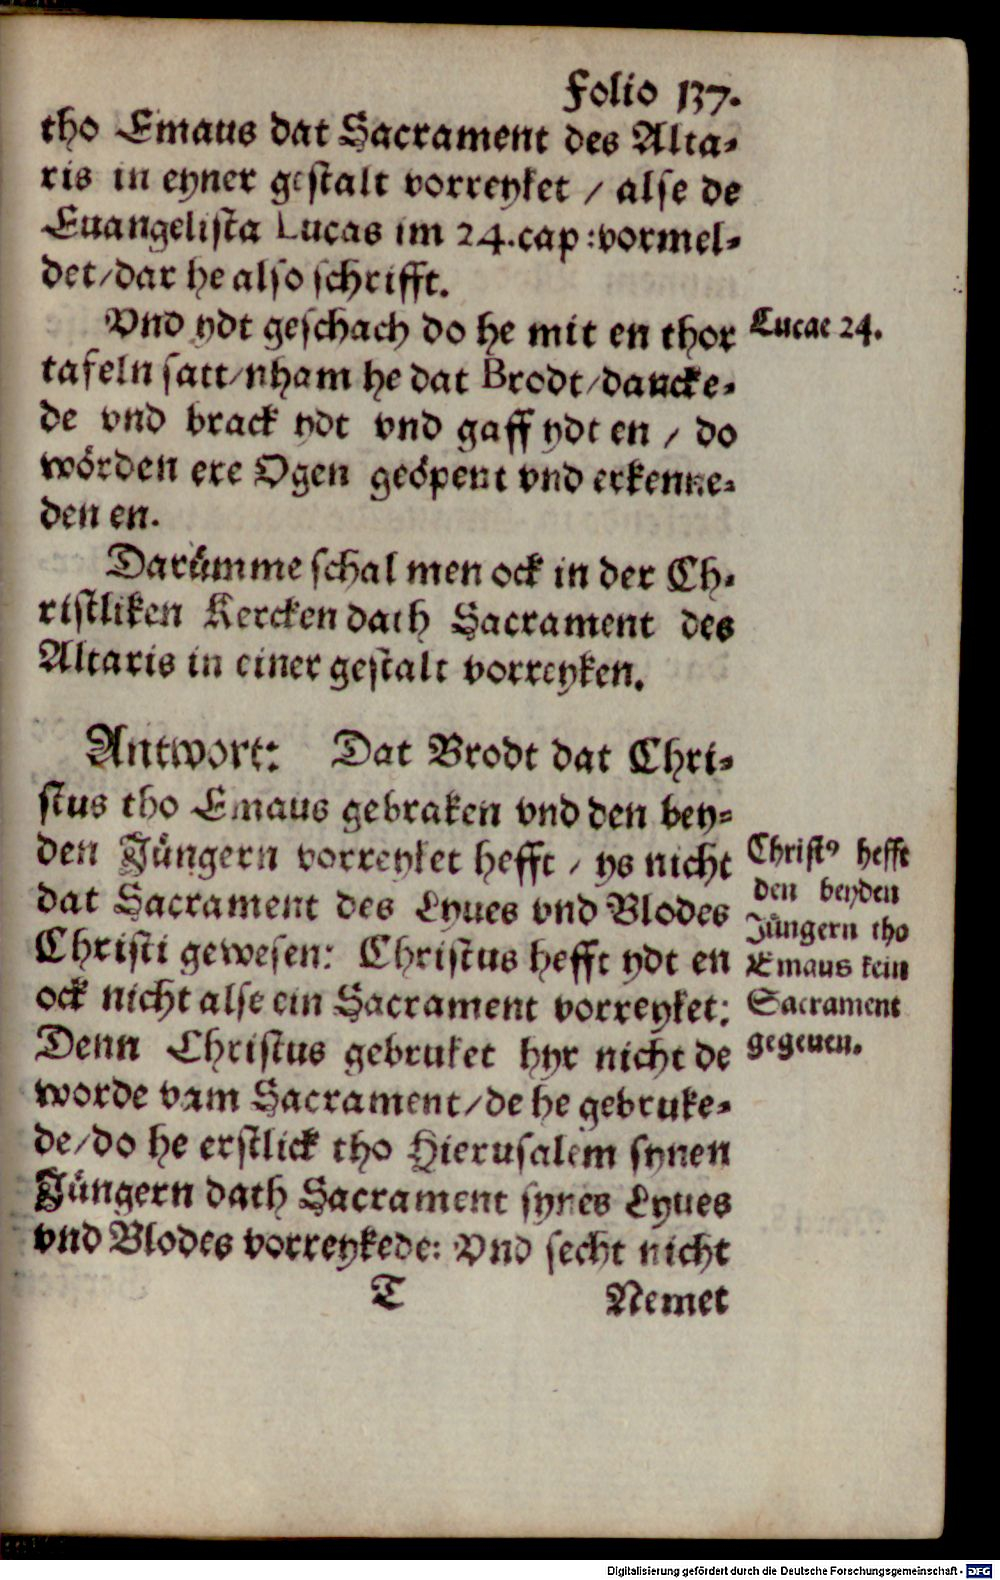 Folio 137.
tho Emaus dat Sacrament des Alta-
ris in eyner gestalt vorreyket / alse de
Euangelista Lucas im 24.cap:vormel-
det/dar he also schrifft.
Vnd ydt geschach do he mit en thor
Lucae 24.
tafeln satt/nham he dat Brodt/dancke-
de vnd brack ydt vnd gaff ydt en / do
wörden ere Ogen geöpent vnd erkenne-
den en.
Darümme schal men ock in der Ch-
ristliken Kercken dath Sacrament des
Altaris in einer gestalt vorreyken.
Antwort: Dat Brodt dat Chri-
stus tho Emaus gebraken vnd den bey-
den Jüngern vorreyket hefft / ys nicht
dat Sacrament des Lyues vnd Blodes
Christi gewesen: Christus hefft ydt en
ock nicht alse ein Sacrament vorreyket:
Denn Christus gebruket hyr nicht de
worde vam Sacrament/de he gebruke-
de/do he erstlick tho Hierusalem synen
Jüngern dath Sacrament synes Lyues
vnd Blodes vorreykede: Vnd secht nicht
Christ⁹ hefft
den beyden
Jüngern tho
Emaus kein
Sacrament
gegeuen.
T
Nemet
Digitalisierung gefördert durch die Deutsche Forschungsgemeinschaft - DFG